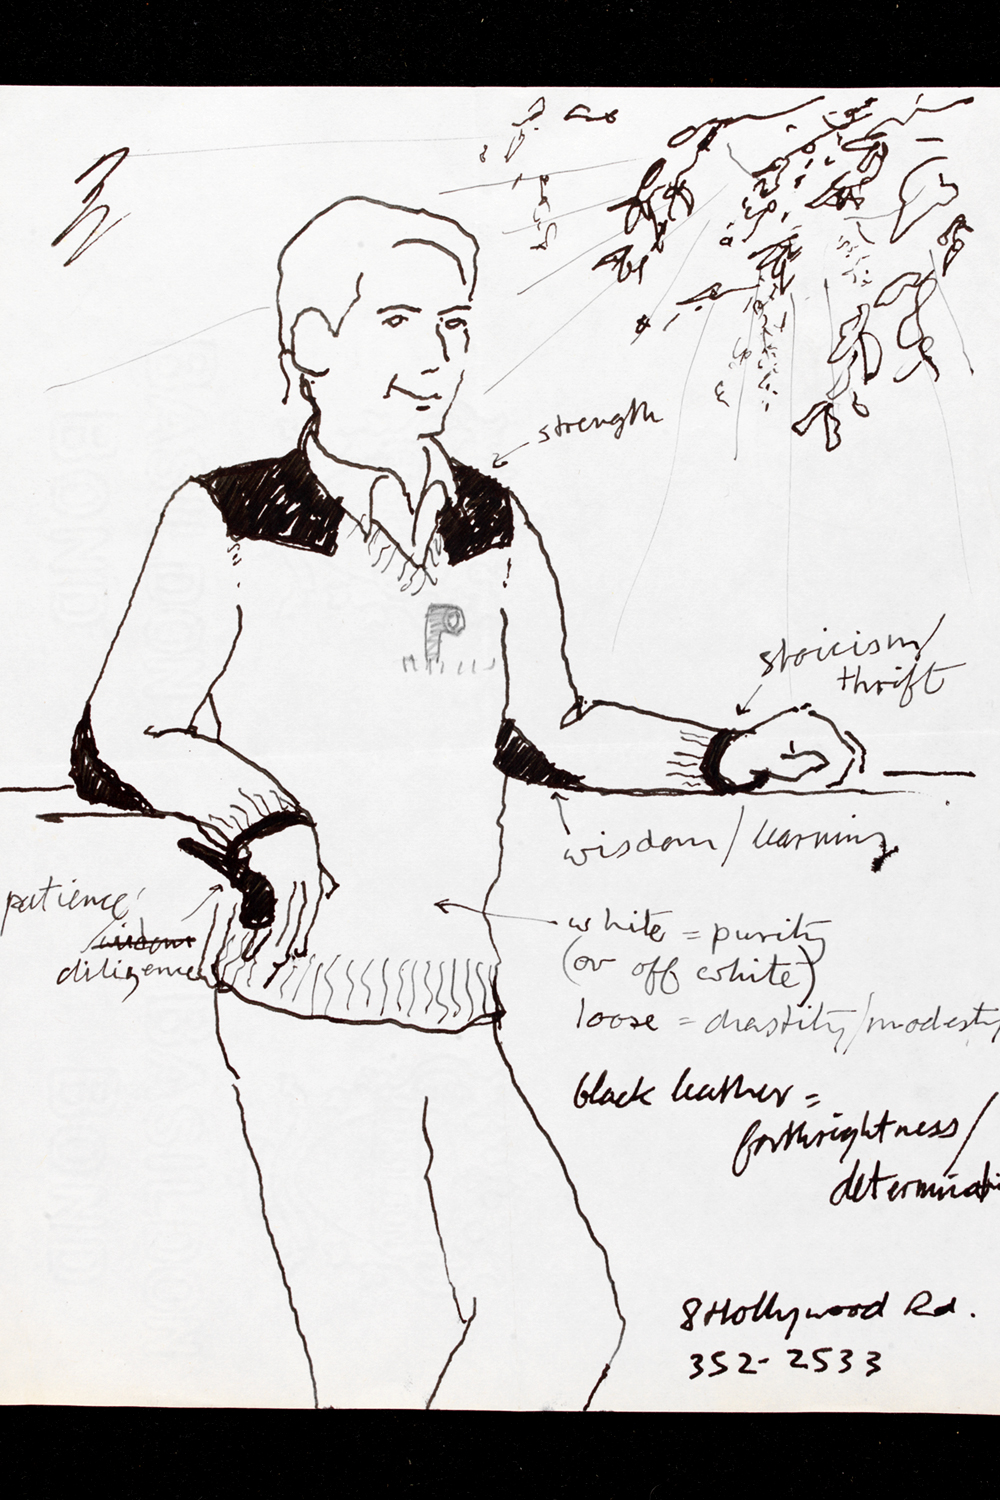 strength
stoicism/
thrift
wisdom/learning
patience/
wisdom
diligence
white = purity
(or off white)
loose = chastity/modesty
black leather =
forthrightness/
determinati
8 Hollywood Rd.
352-2533
P